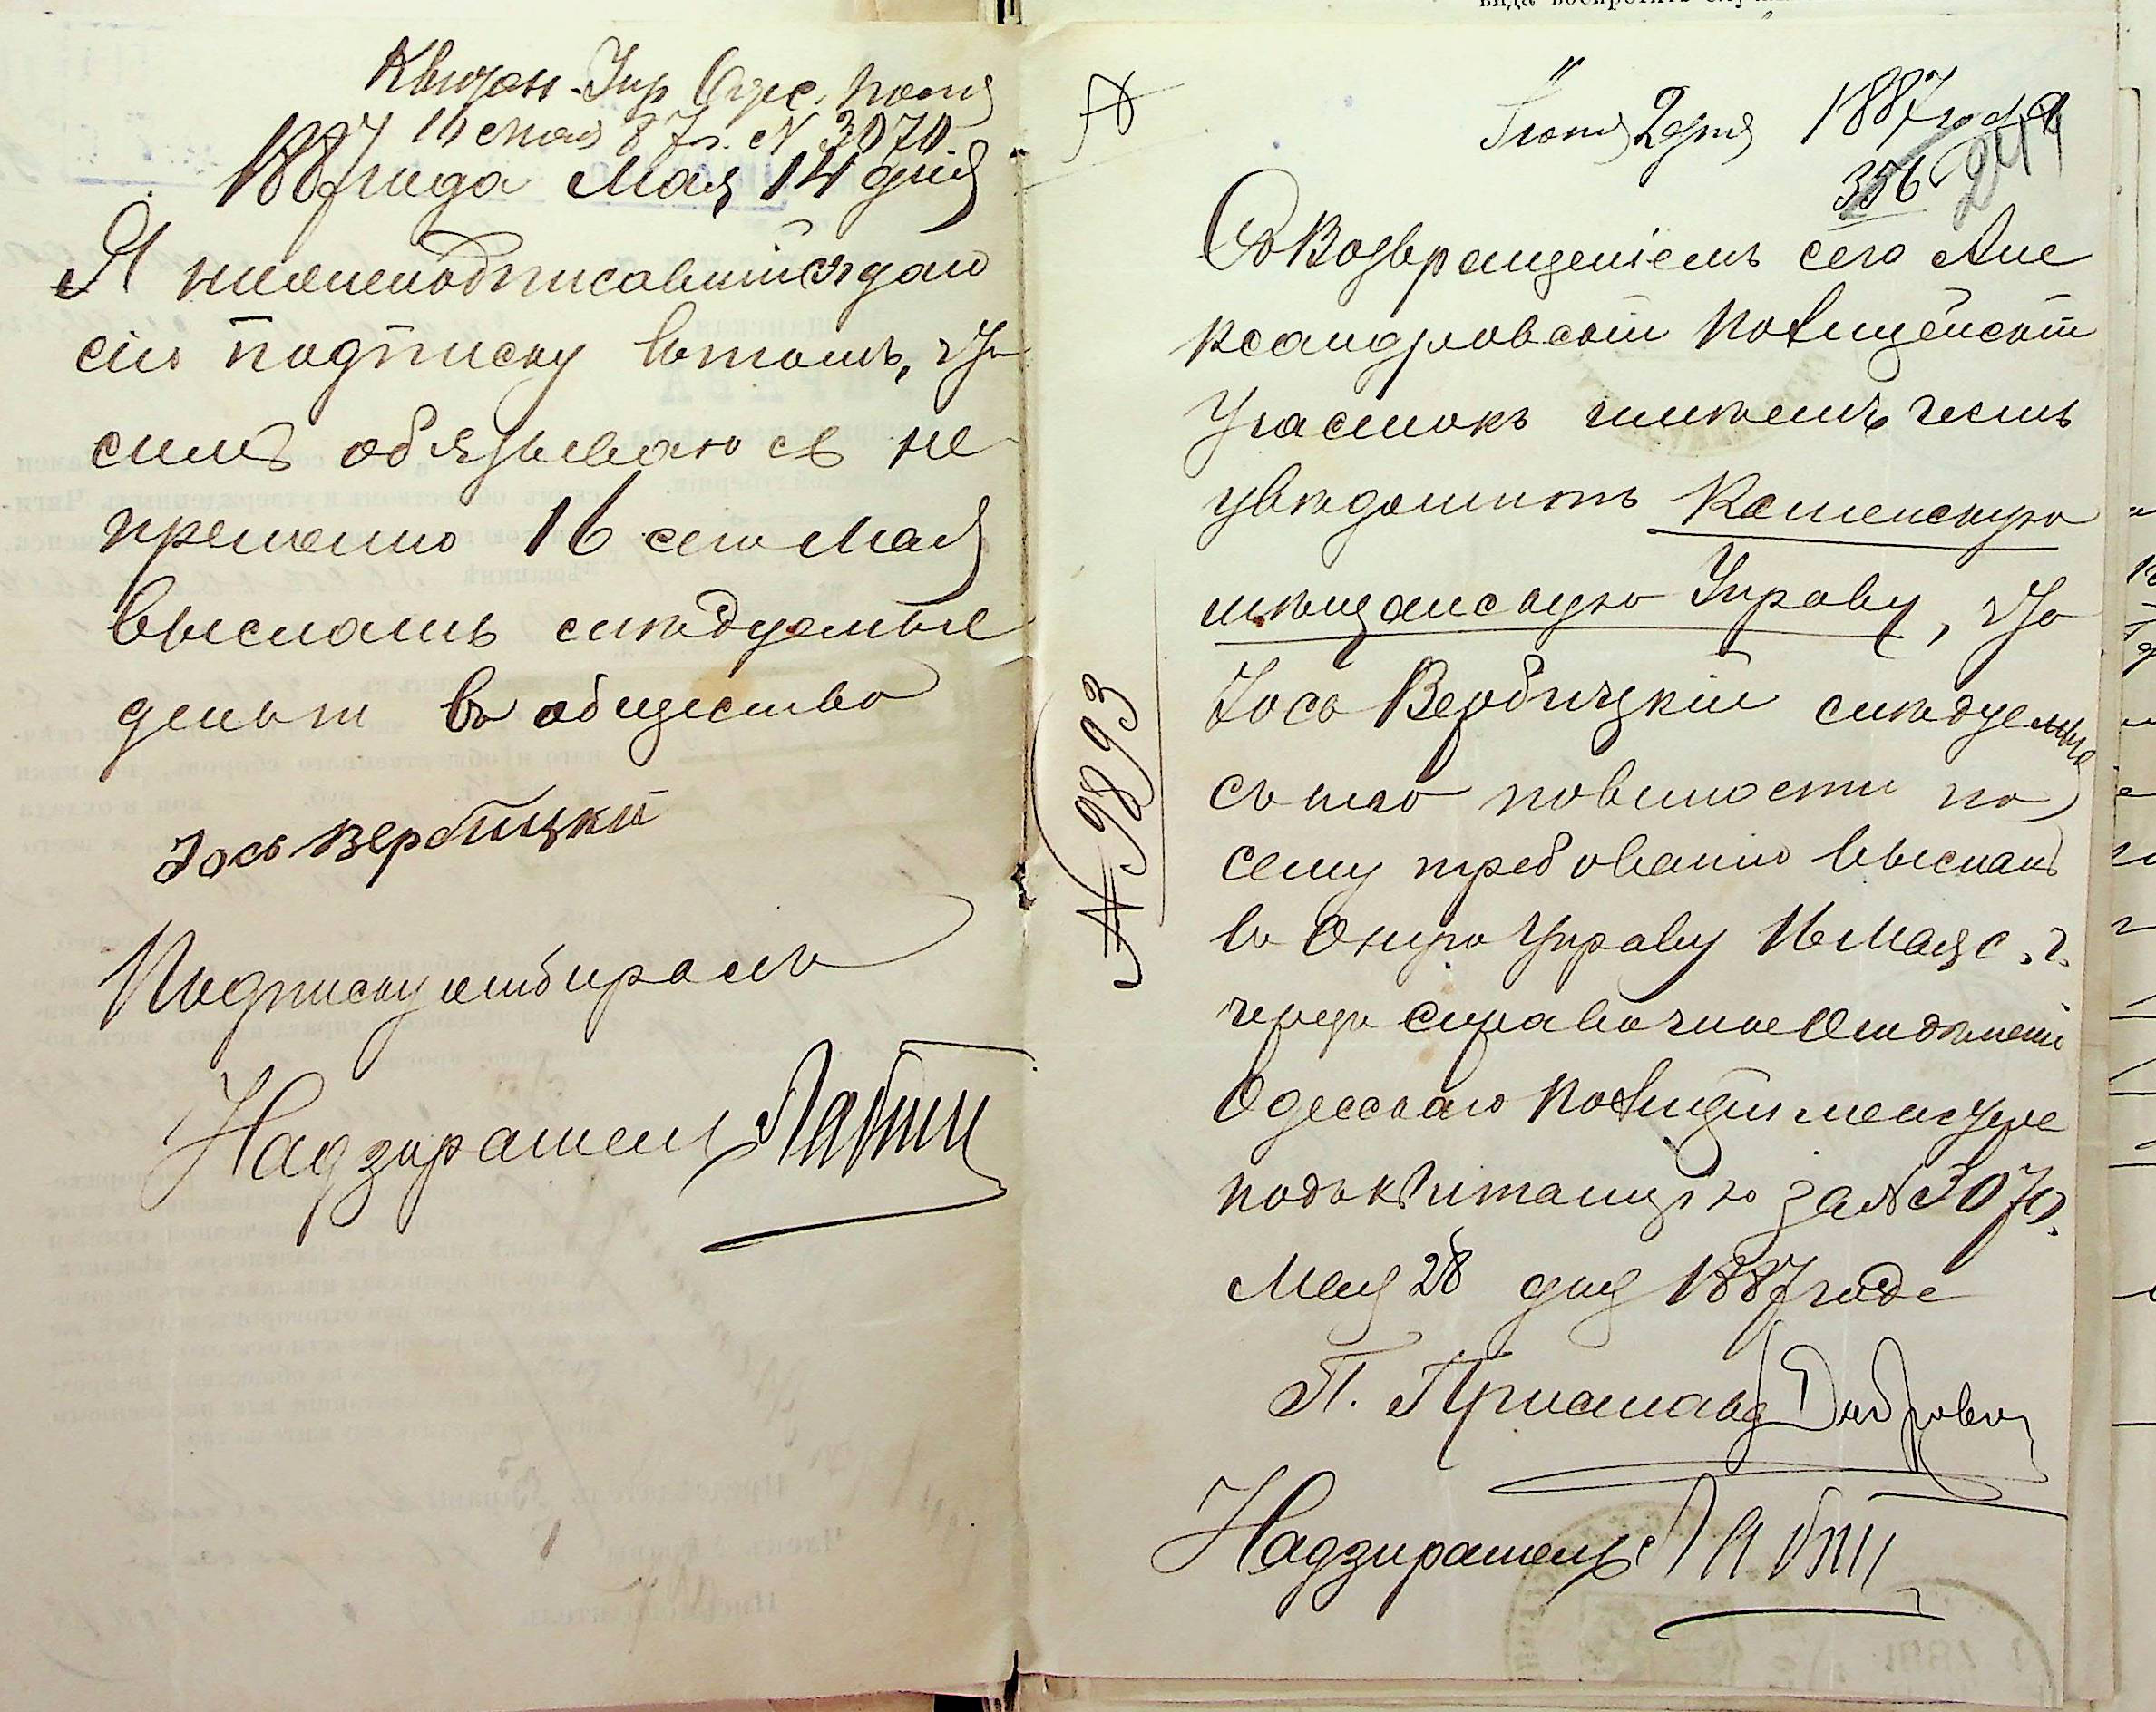 Квитан. Упр Одес. полиц
16 мая 87 г. N 3070.
1887 года Мая 14 дня
Я нижеподписавшійся даю
сію подписку вътомъ, что
симъ обязываюсь не
пременно 16 сего Мая
выслать следуемые
деньги въ общество
Іось Вербицкій
Подписку отбиралъ
Надзиратель Лабти
Іюня 2 дня 1887 года
356 244
Съ Возвращеніемъ сего Але
ксандровскій Полицейскій
Участокъ имеетъ честь
уведомить Каменскую
мещанскую Управу, что
Іось Вербицкій следуемые
съ него повинности по
сему требованію выслалъ
въ Оную Управу 16 Мая с. г.
чрезъ Справочное Отделеніе
Одесской Полиціи
подъ квитанцію за N 3070.
Мая 28 дня 1887 года
П. Пристава
Надзиратель Лабти
N 9893